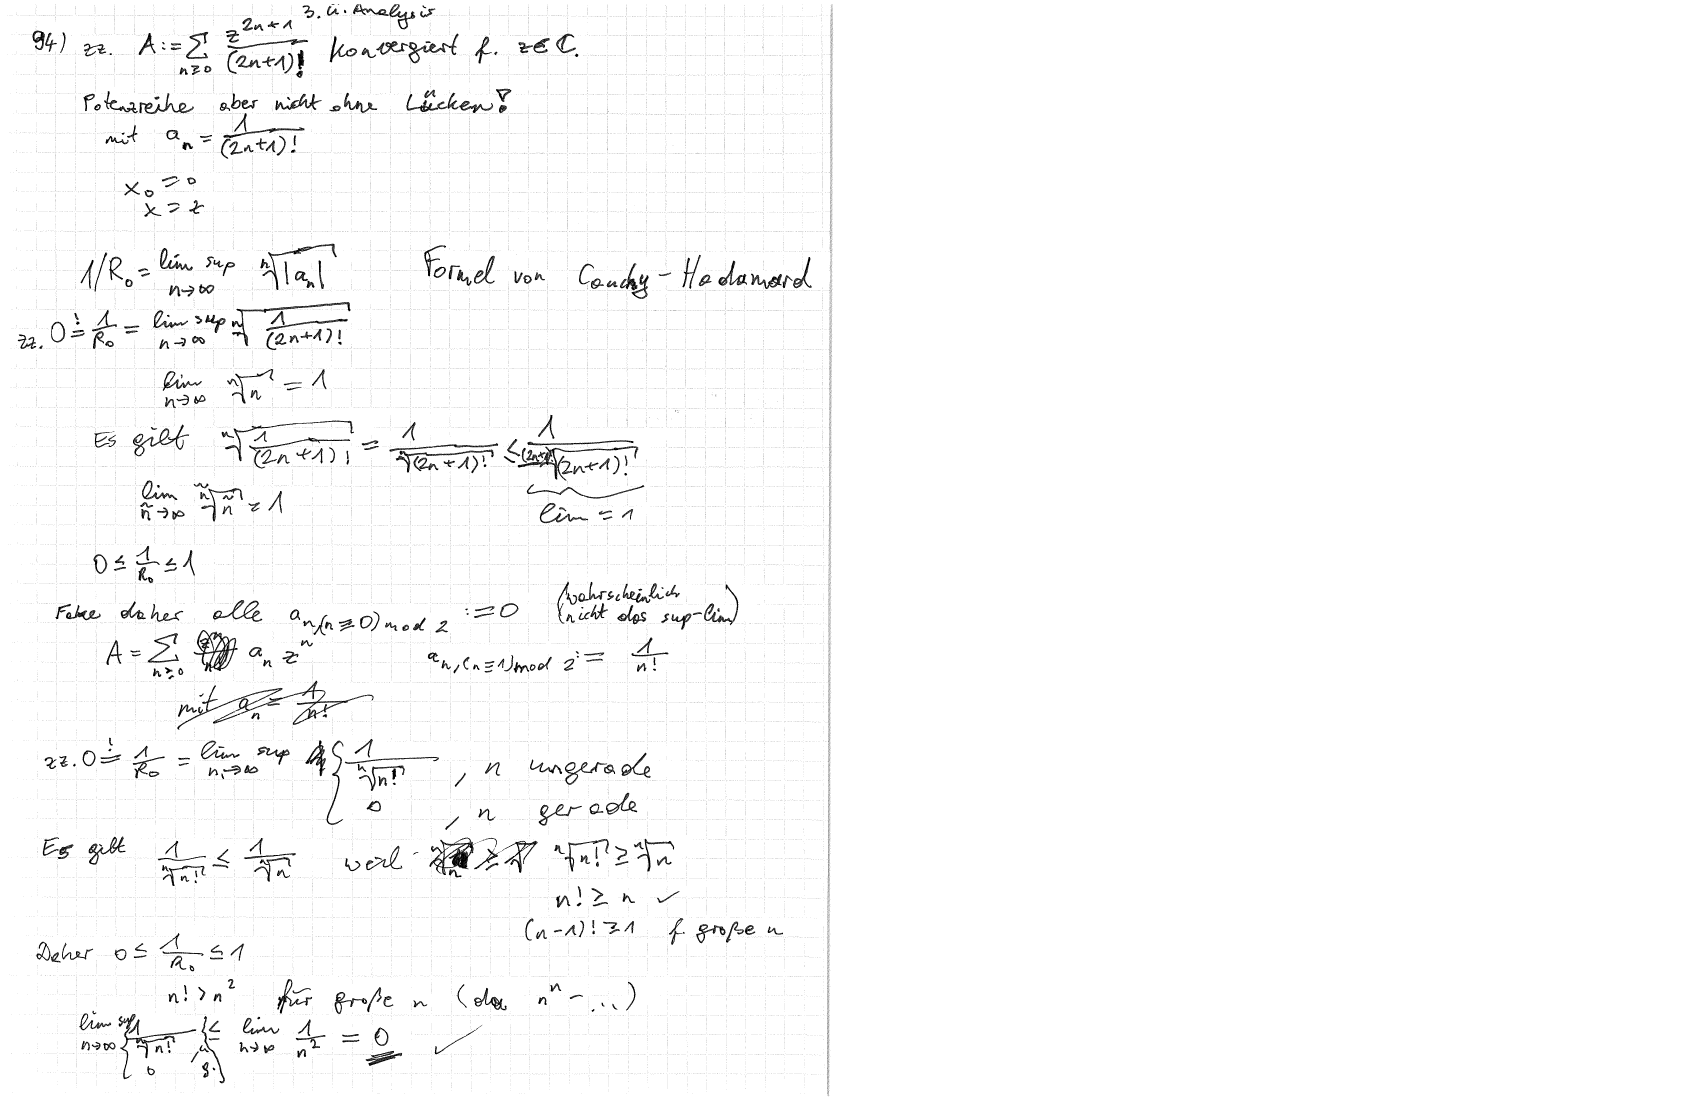 3. ü. Analysis
94) zz. A := ∑_{n≥0} z^{2n+1}/(2n+1)! konvergiert f. z∈ℂ.
Potenzreihe aber nicht ohne Lücken!
mit a_n = 1/(2n+1)!
x_0 = 0
x = z
1/R_0 = lim sup_{n→∞} ⁿ√|a_n| Formel von Cauchy-Hadamard
zz. 0 =! 1/R_0 = lim sup_{n→∞} ⁿ√(1/(2n+1)!)
lim_{n→∞} ⁿ√n = 1
Es gibt ⁿ√(1/(2n+1)!) = 1/ⁿ√((2n+1)!) ≤ 1/^{(2n+1)!}√((2n+1)!)
lim_{ñ→∞} ^ñ√ñ = 1 lim = 1
0 ≤ 1/R_0 ≤ 1
daher alle a_{n,(n≡0) mod 2} := 0 (wahrscheinlich nicht das sup-lim)
A = ∑_{n≥0} a_n z^n a_{n,(n≡1) mod 2} := 1/n!
mit a_n = 1/n!
zz. 0 =! 1/R_0 = lim sup_{n→∞} { 1/ⁿ√(n!) , n ungerade
0 , n gerade
Es gibt 1/ⁿ√(n!) ≤ 1/ⁿ√n weil ⁿ√(n!) ≥ ⁿ√n
n! ≥ n ✓
(n-1)! ≥ 1 f. große n
Daher 0 ≤ 1/R_0 ≤ 1
n! > n² für große n (da nⁿ - ...)
lim sup_{n→∞} { 1/ⁿ√(n!) , u 0 g. } ≤ lim_{n→∞} 1/n² = 0 ✓